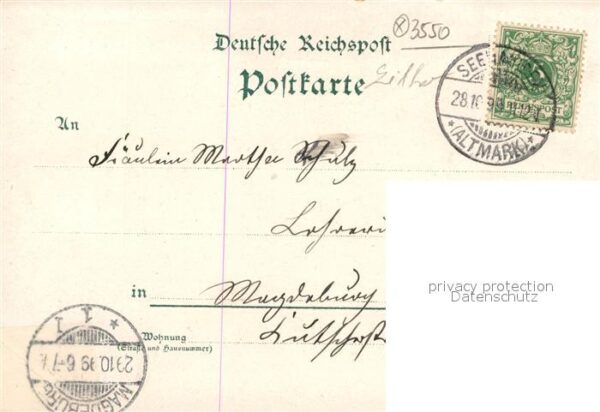 3550
Deutsche Reichspost
Postkarte
28.10.99
REICHSPOST
(ALTMARK)
An
Fräulein Martha Schulz
Lehreri
in Magdeburg
privacy protection
Datenschutz
Wohnung
(Straße und Hausnummer)
1 1
29.10.99 6-7
MAGDEBURG